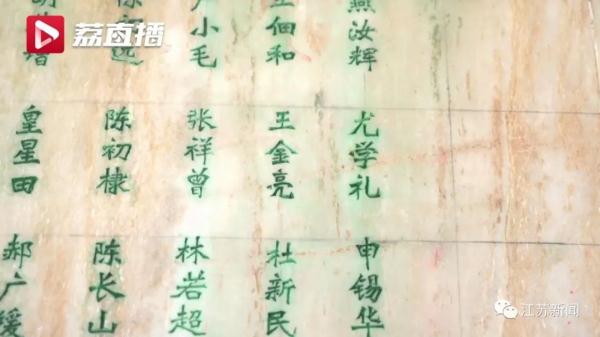 荔直播
燕汝辉
尤学礼
申锡华
佃和
王金亮
杜新民
小毛
张祥曾
林若超
远
陈初棣
陈长山
皇星田
郝广
江苏新闻